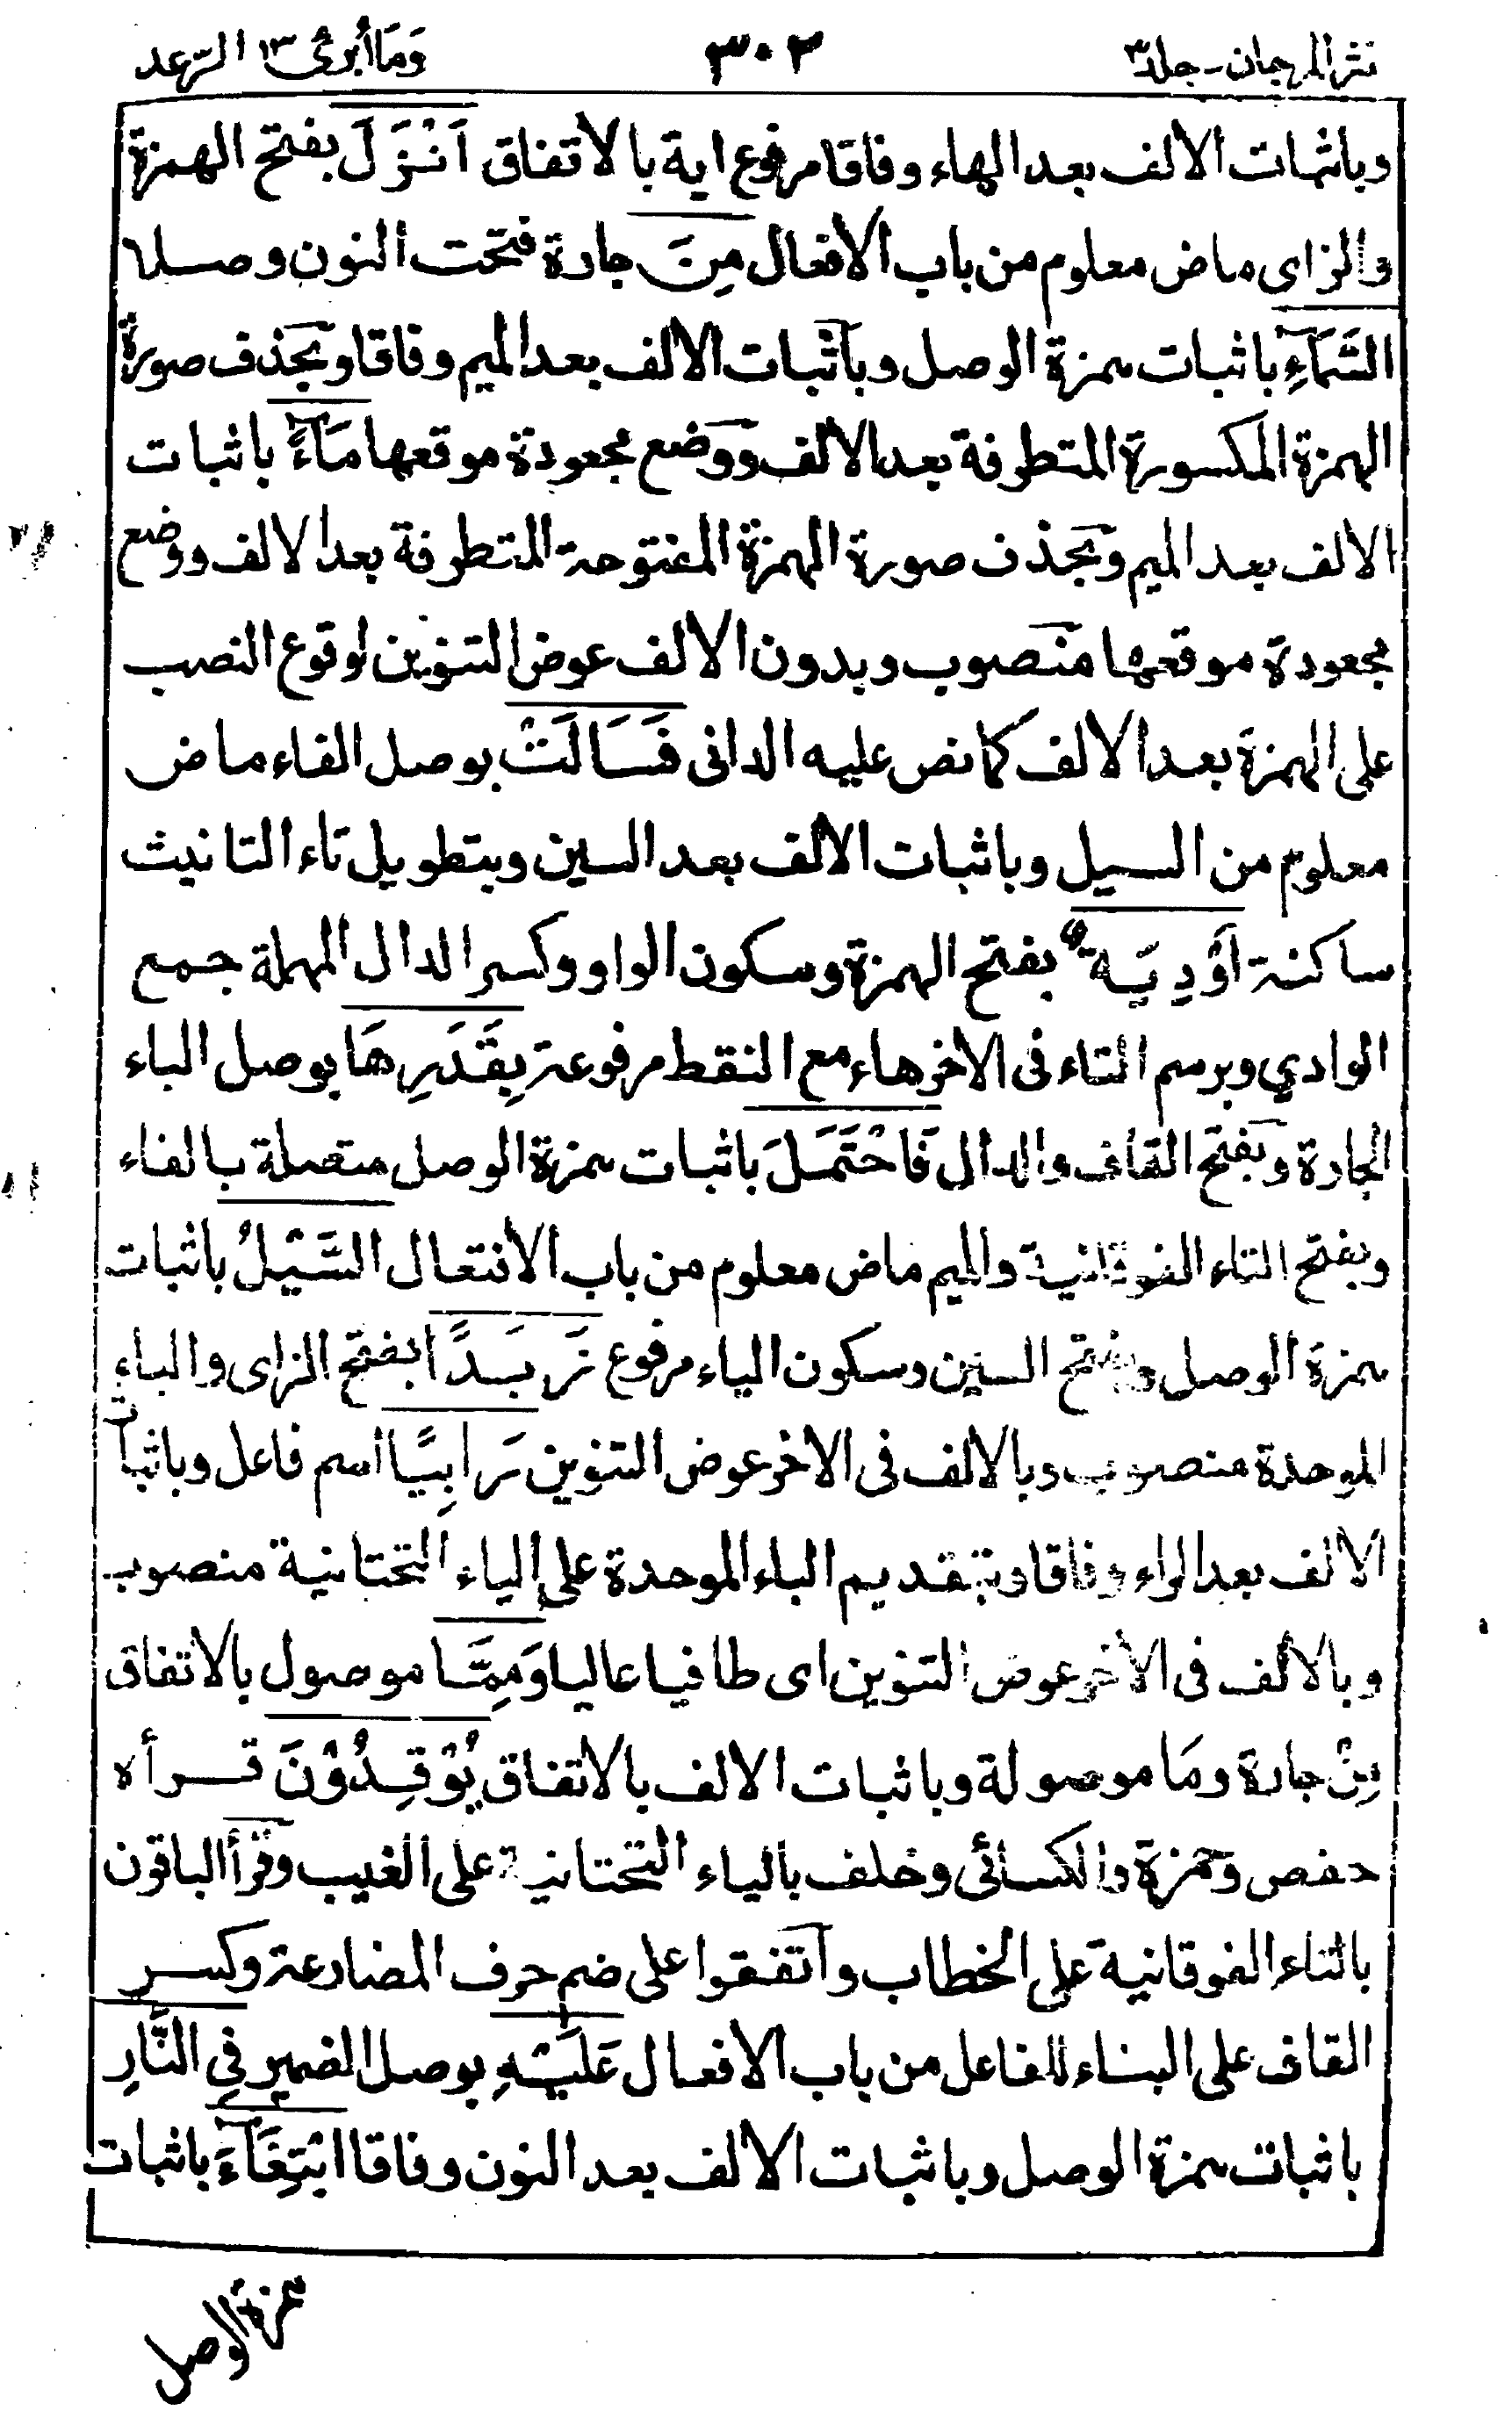 نثر المرجان - جلد ٣
٣٠٢
وَمَا أبرئ ١٣ الرعد
وباثبات الالف بعد الهاء وفاقا مرفوع اية بالاتفاق اَنْزَلَ بفتح الهمزة
والزاى ماض معلوم من باب الافعال مِنَ جارة فتحت النون وصلا
السَّمَآءِ باثبات همزة الوصل وباثبات الالف بعد الميم وفاقا وبحذف صورة
الهمزة المكسورة المتطرفة بعد الالف ووضع مجعودة موقعها مَآءً باثبات
الالف بعد الميم وبحذف صورة الهمزة المفتوحة المتطرفة بعد الالف ووضع
مجعودة موقعها منصوب وبدون الالف عوض التنوين لوقوع النصب
على الهمزة بعد الالف كما نص عليه الدانى فَسَالَتْ بوصل الفاء ماض
معلوم من السيل وباثبات الالف بعد السين وبتطويل تاء التانيث
ساكنة اَوْدِيَةٌ بفتح الهمزة وسكون الواو وكسر الدال المهملة جمع
الوادي وبرسم التاء فى الاخر هاء مع النقط مرفوعة بِقَدَرِهَا بوصل الباء
الجارة وبفتح القاف والدال فَاحْتَمَلَ باثبات همزة الوصل متصلة بالفاء
وبفتح التاء الفوقانية والميم ماض معلوم من باب الافتعال السَّيْلُ باثبات
همزة الوصل وبفتح السين وسكون الياء مرفوع زَبَدًا بفتح الزاى والباء
الموحدة منصوب وبالالف فى الاخر عوض التنوين رَابِيًا اسم فاعل وباثبات
الالف بعد الراء وفاقا وبتقديم الباء الموحدة على الياء التحتانية منصوب
وبالالف فى الاخر عوض التنوين اى طافيا عاليا وَمِمَّا موصول بالاتفاق
مِنْ جارة ومَا موصولة وباثبات الالف بالاتفاق يُوْقِدُوْنَ قرأه
حفص وحمزة والكسائى وخلف بالياء التحتانية على الغيب وقرأ الباقون
بالتاء الفوقانية على الخطاب واتفقوا على ضم حرف المضارعة وكسر
القاف على البناء للفاعل من باب الافعال عَلَيْهِ بوصل الضمير فِي النَّارِ
باثبات همزة الوصل وباثبات الالف بعد النون وفاقا ابْتِغَآءَ باثبات
همزة الوصل